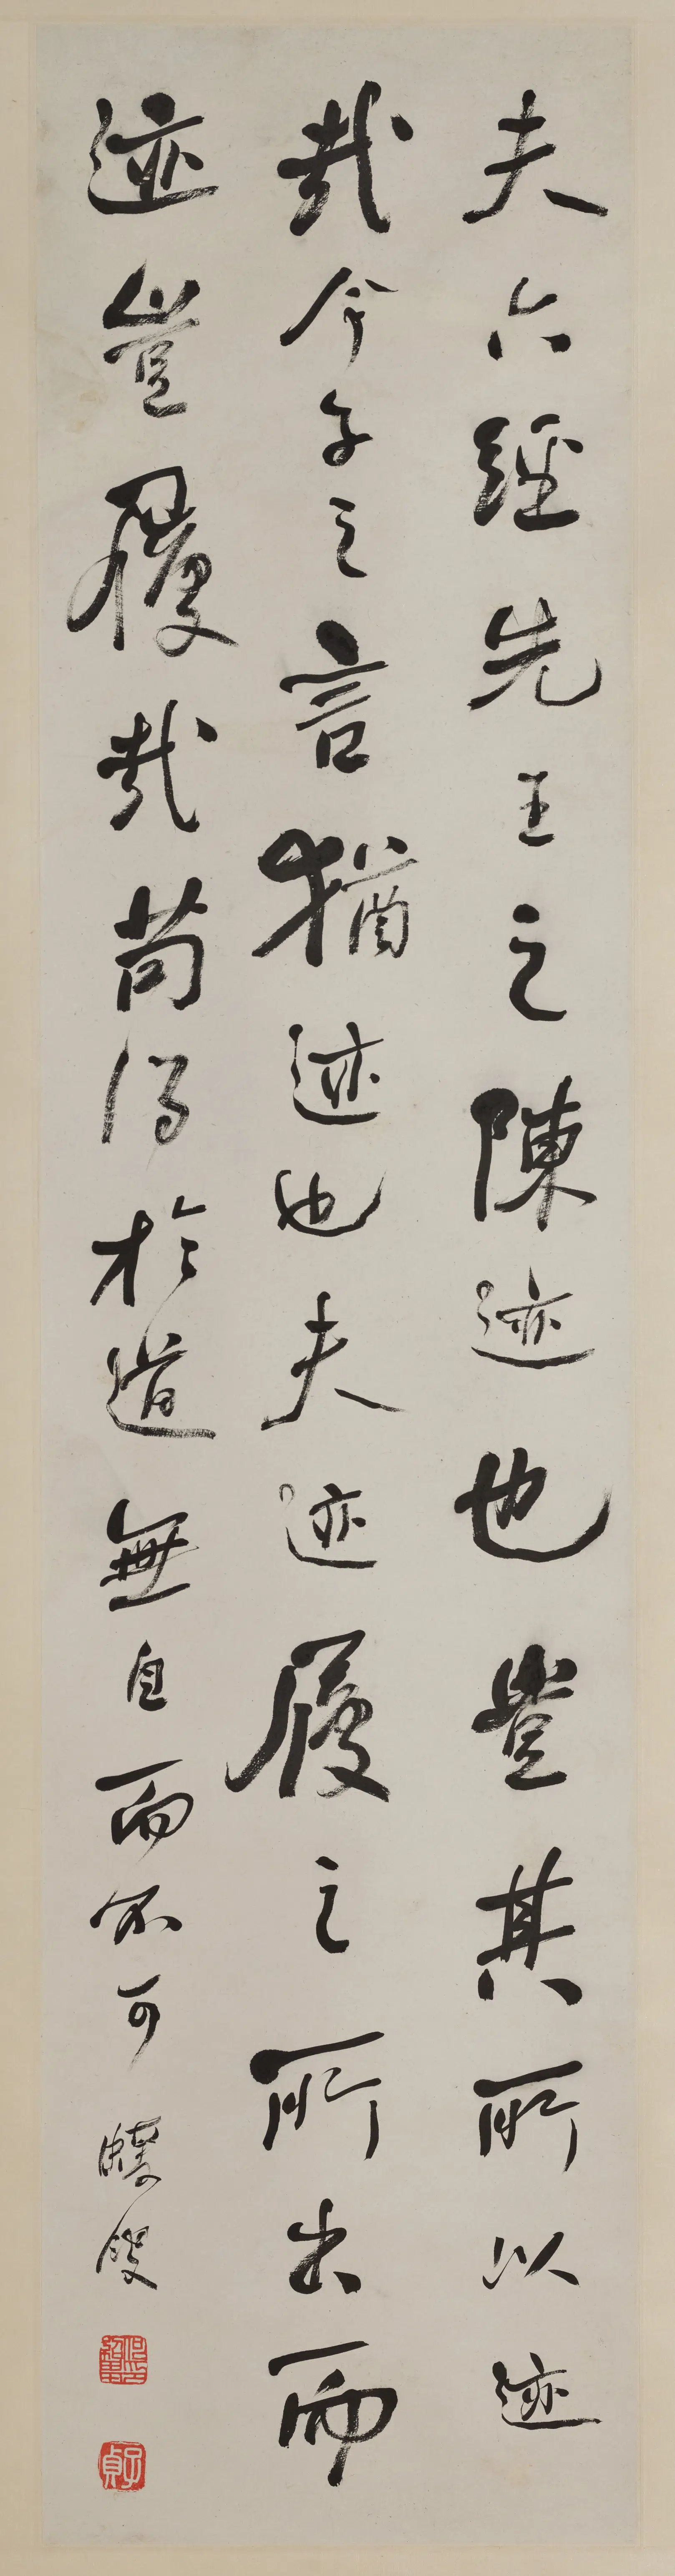 夫六經先王之陳迹也豈其所以迹
哉今子之言猶迹也夫迹履之所出而
迹豈履哉苟得於道無自而不可
蝯叟
何紹基印
子貞